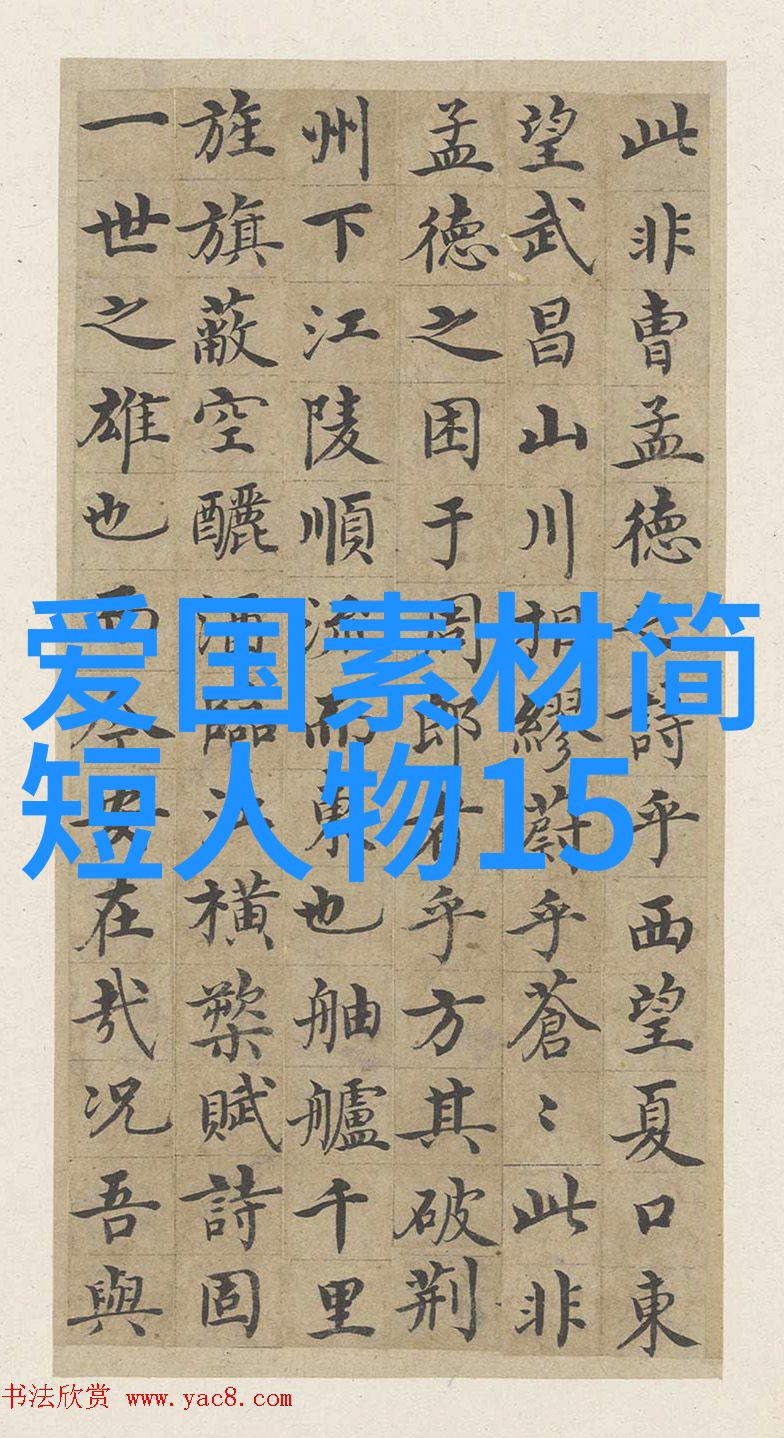 此非曹孟德之詩乎西望夏口東
望武昌山川相繆蔚乎蒼〻此非
孟德之困于周郎者乎方其破荊
州下江陵順流而東也舳艫千里
旌旗蔽空釃酒臨江橫槊賦詩固
一世之雄也而今安在哉况吾與
爱国素材简
短人物15
书法欣赏 www.yac8.com